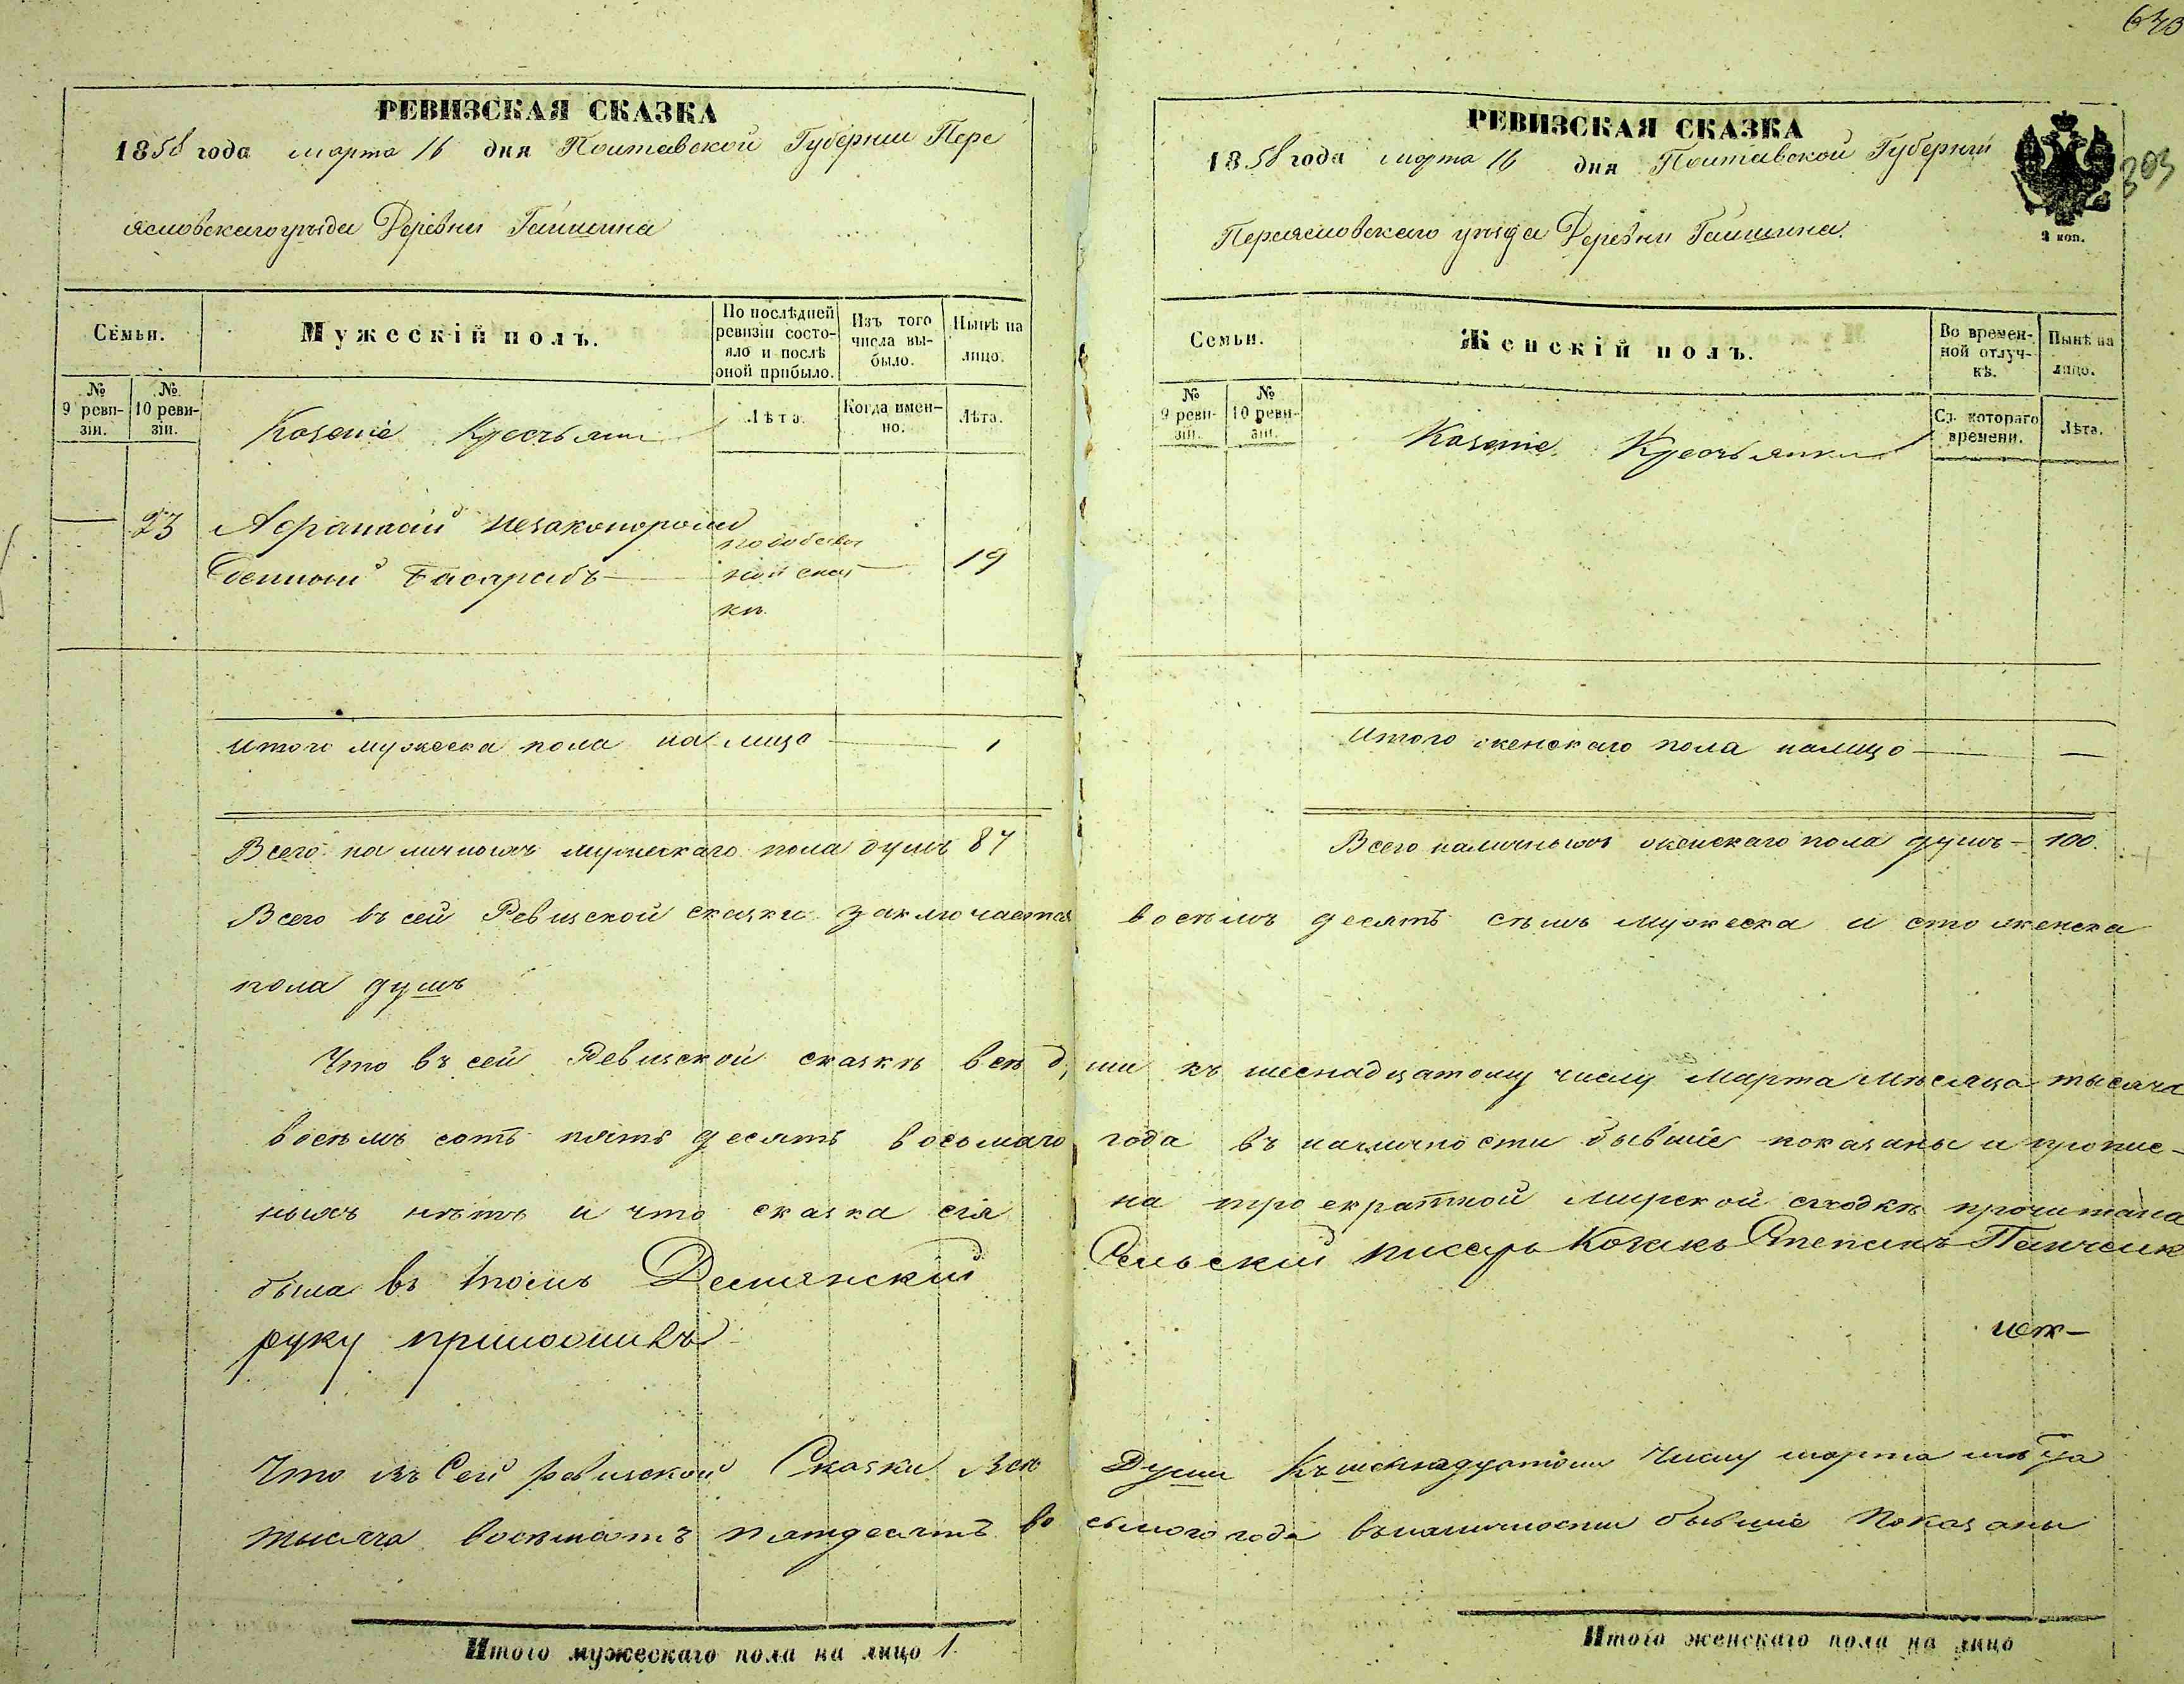 630
РЕВИЗСКАЯ СКАЗКА
1858 года марта 16 дня Полтавской Губерніи Пере
яславскаго уѣзда Деревни Гайшина
Семьи.
Мужескій полъ.
По послѣдней ревизіи состояло и послѣ оной прибыло.
Изъ того числа выбыло.
Нынѣ на лицо.
№ 9 ревизіи.
№ 10 ревизіи.
Казеніе Крестьяни
Лѣта.
Когда именно.
Лѣта.
— 23 Афанасій незаконорож
денный Басарабъ — 19
по собствен
ной сказ
кѣ.
итого мужеска пола на лицо — 1
Всего наличныхъ мужескаго пола душъ 87
РЕВИЗСКАЯ СКАЗКА
1858 года марта 16 дня Полтавской Губерніи
Переяславскаго уѣзда Деревни Гайшина.
303
3 коп.
Семьи.
Женскій полъ.
Во временной отлучкѣ.
Нынѣ на лицо.
№ 9 ревизіи.
№ 10 ревизіи.
Казеніе Крестьянки
Съ котораго времени.
Лѣта.
Итого женскаго пола налицо — —
Всего наличныхъ женскаго пола душъ — 100.
Всего въ сей Ревизской сказки заключается восѣмъ десятъ сѣмъ мужеска и сто женска
пола душъ
Что въ сей Ревизской сказкѣ всѣ души къ шеснадцатому числу Марта мѣсяца тысяча
восѣмъ сотъ пять десятъ восьмаго года въ наличности бывшіе показаны и пропис-
ныхъ нѣтъ и что сказка сія на троекратной мирской сходкѣ прочитана
была въ томъ Демянскій Сельскій писарь Козакъ Степанъ Панченк
руку приложилъ
Что въ Сей ревизской Сказки Всѣ Души Къ шеснадцатому Числу марта мѣца
тысяча восѣмсотъ пятдесятъ восьмого года въ наличности бывшіе Показаны
Итого мужескаго пола на лицо 1.
Итого женскаго пола на лицо